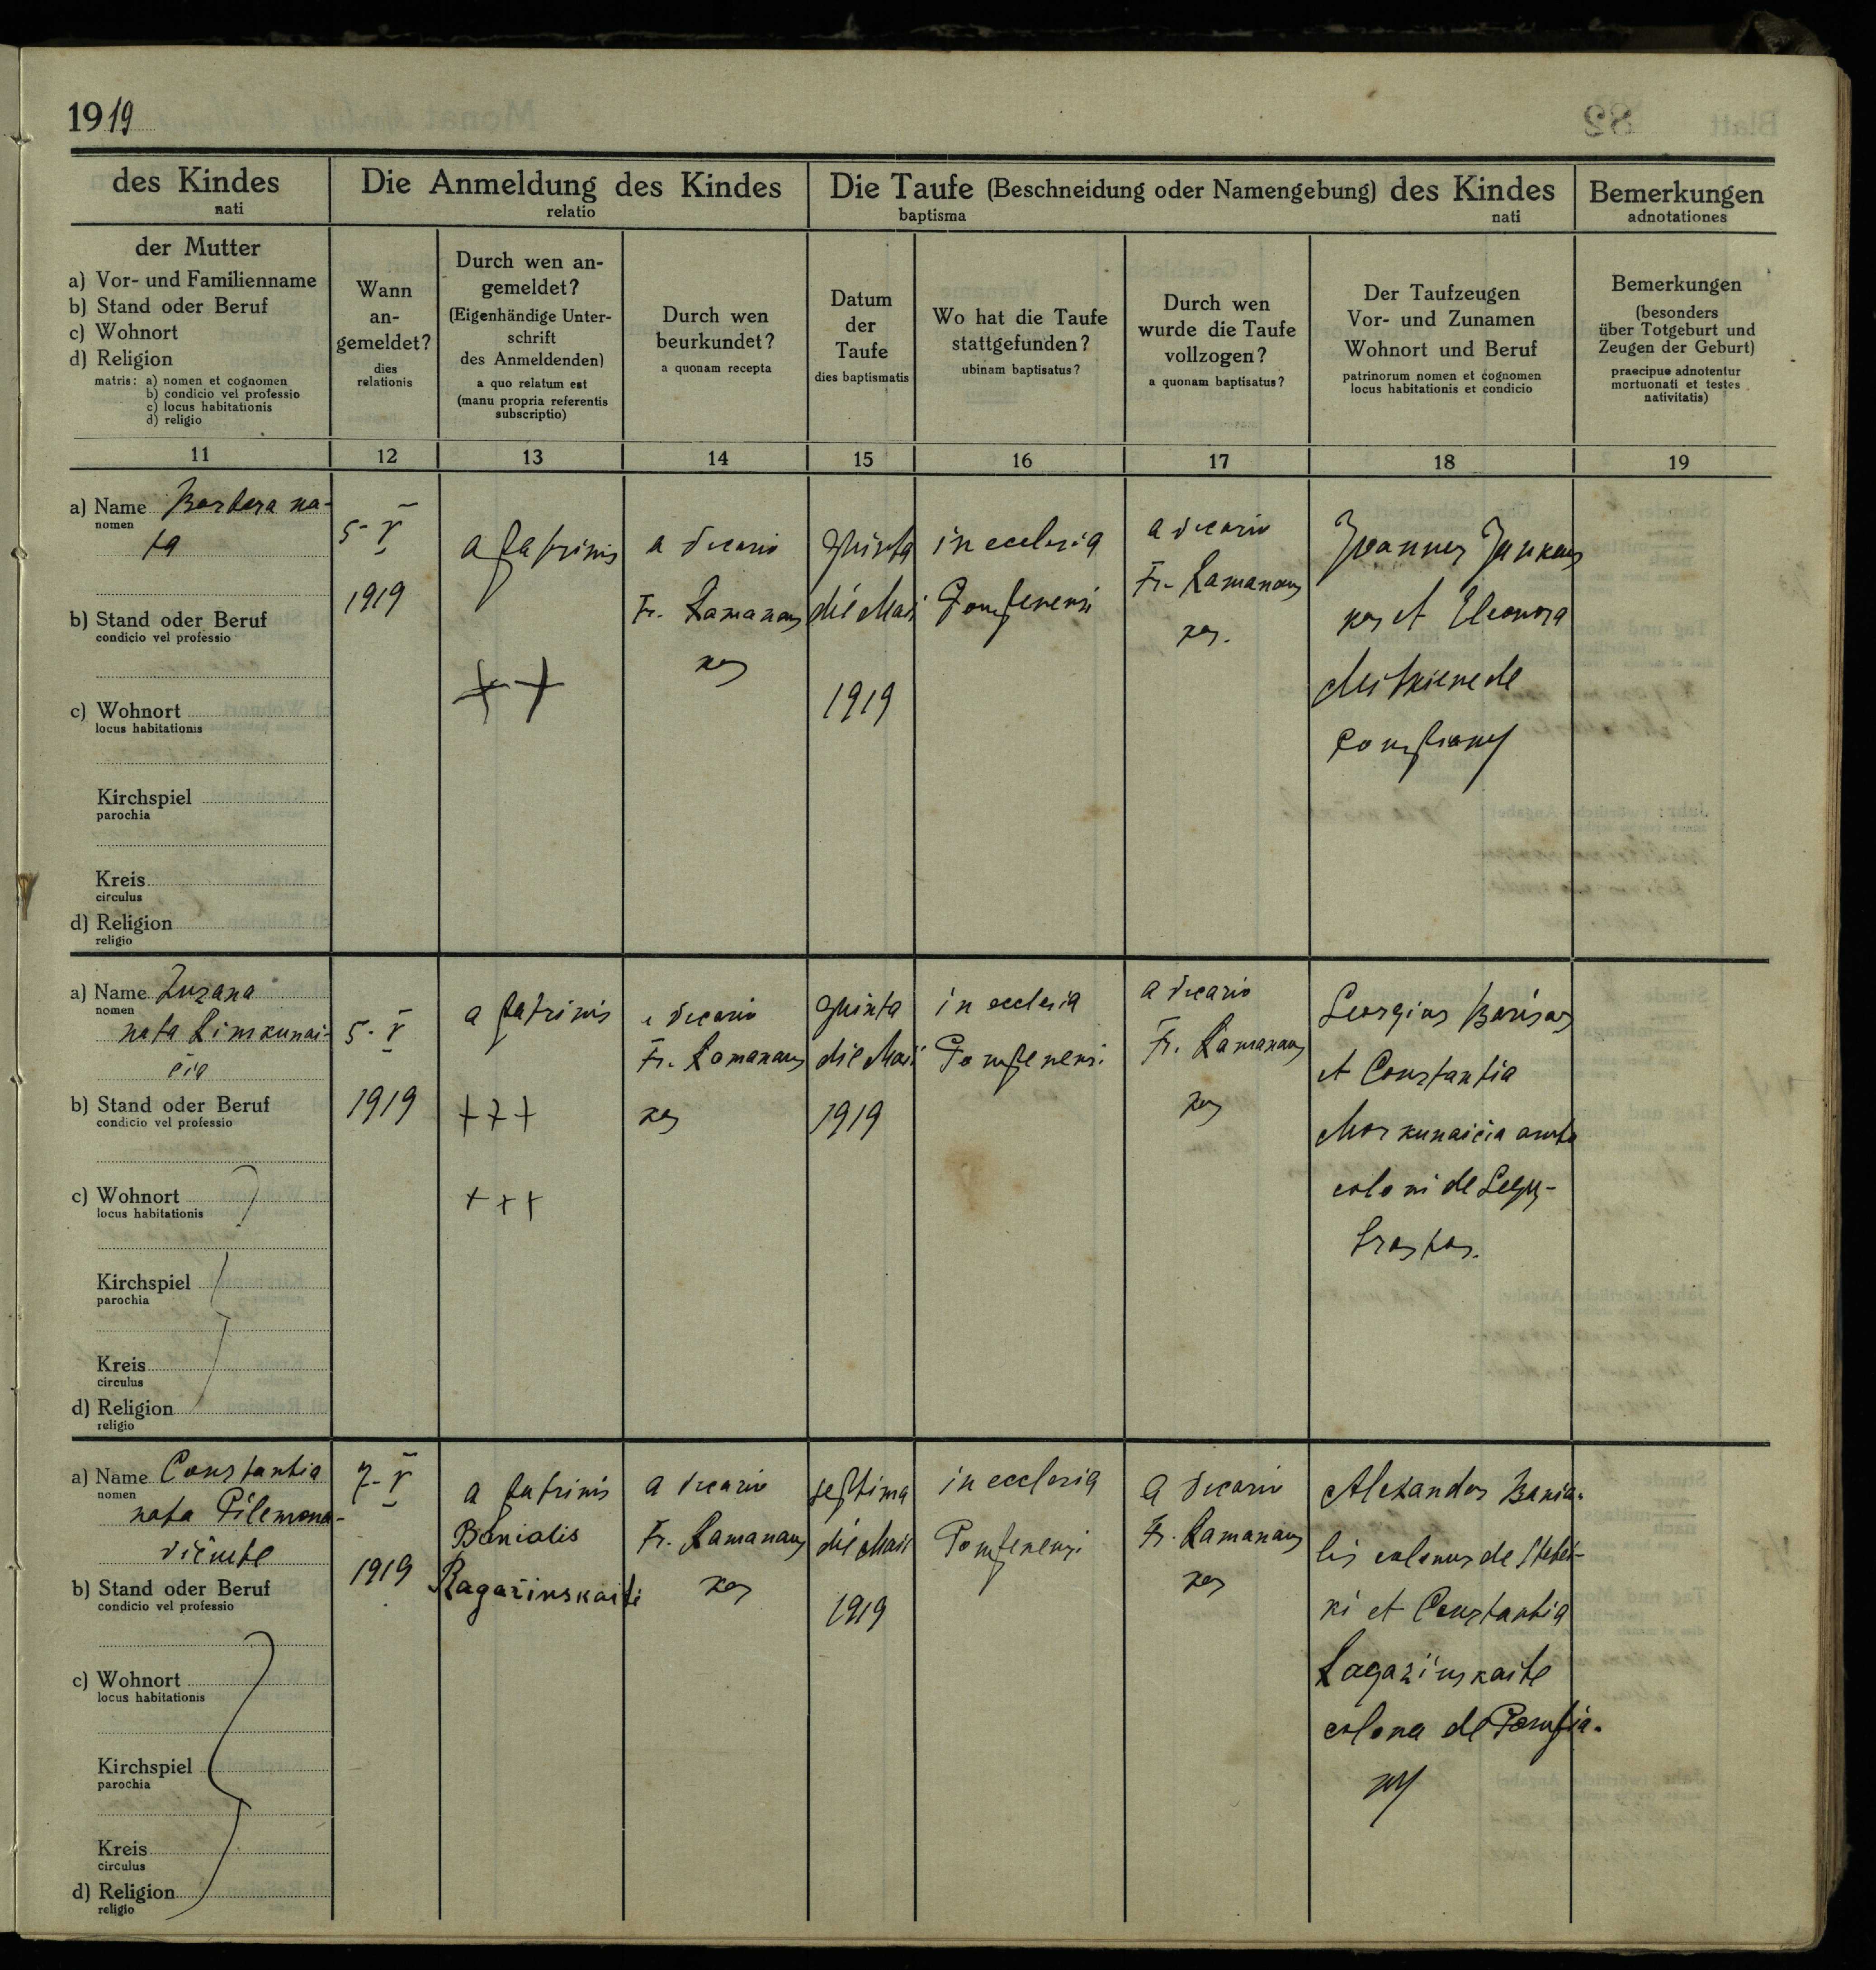 1919
des Kindes
nati
Die Anmeldung des Kindes
relatio
Die Taufe (Beschneidung oder Namengebung) des Kindes
baptisma nati
Bemerkungen
adnotationes
der Mutter
a) Vor- und Familienname
b) Stand oder Beruf
c) Wohnort
d) Religion
matris: a) nomen et cognomen
b) condicio vel professio
c) locus habitationis
d) religio
Wann
an-
gemeldet?
dies
relationis
Durch wen an-
gemeldet?
(Eigenhändige Unter-
schrift
des Anmeldenden)
a quo relatum est
(manu propria referentis
subscriptio)
Durch wen
beurkundet?
a quonam recepta
Datum
der
Taufe
dies baptismatis
Wo hat die Taufe
stattgefunden?
ubinam baptisatus?
Durch wen
wurde die Taufe
vollzogen?
a quonam baptisatus?
Der Taufzeugen
Vor- und Zunamen
Wohnort und Beruf
patrinorum nomen et cognomen
locus habitationis et condicio
Bemerkungen
(besonders
über Totgeburt und
Zeugen der Geburt)
praecipue adnotentur
mortuonati et testes
nativitatis)
11 12 13 14 15 16 17 18 19
a) Name Barbara na-
nomen
ta
b) Stand oder Beruf
condicio vel professio
c) Wohnort
locus habitationis
Kirchspiel
parochia
Kreis
circulus
d) Religion
religio
5-V
1919
a patrinis
++
a vicario
Fr. Ramanaus
kas
Quinta
die Maii
1919
in ecclesia
Pompenensi
a vicario
Fr. Ramanaus
kas.
Joannes Jankaus
kas et Eleonora
de
Pompiany
a) Name Zuzana
nomen
nata Limkunai-
čia
b) Stand oder Beruf
condicio vel professio
c) Wohnort
locus habitationis
Kirchspiel
parochia
Kreis
circulus
d) Religion
religio
5-V
1919
a patrinis
+++
+++
a vicario
Fr. Ramanaus
kas
Quinta
die Maii
1919
in ecclesia
Pompenensi
a vicario
Fr. Ramanaus
kas
Georgius Barisas
et Constantia
Morkunaičia ambo
coloni de
a) Name Constantia
nomen
nata Pilemona-
vičiute
b) Stand oder Beruf
condicio vel professio
c) Wohnort
locus habitationis
Kirchspiel
parochia
Kreis
circulus
d) Religion
religio
7-V
1919
a patrinis
Banialis
Ragažinskaite
a vicario
Fr. Ramanaus
kas
septima
die Maii
1919
in ecclesia
Pompenensi
a vicario
Fr. Ramanaus
kas
Alexander Bania-
lis colonus de
ki et Constantia
Ragažinskaite
colona de Pompia-
ny